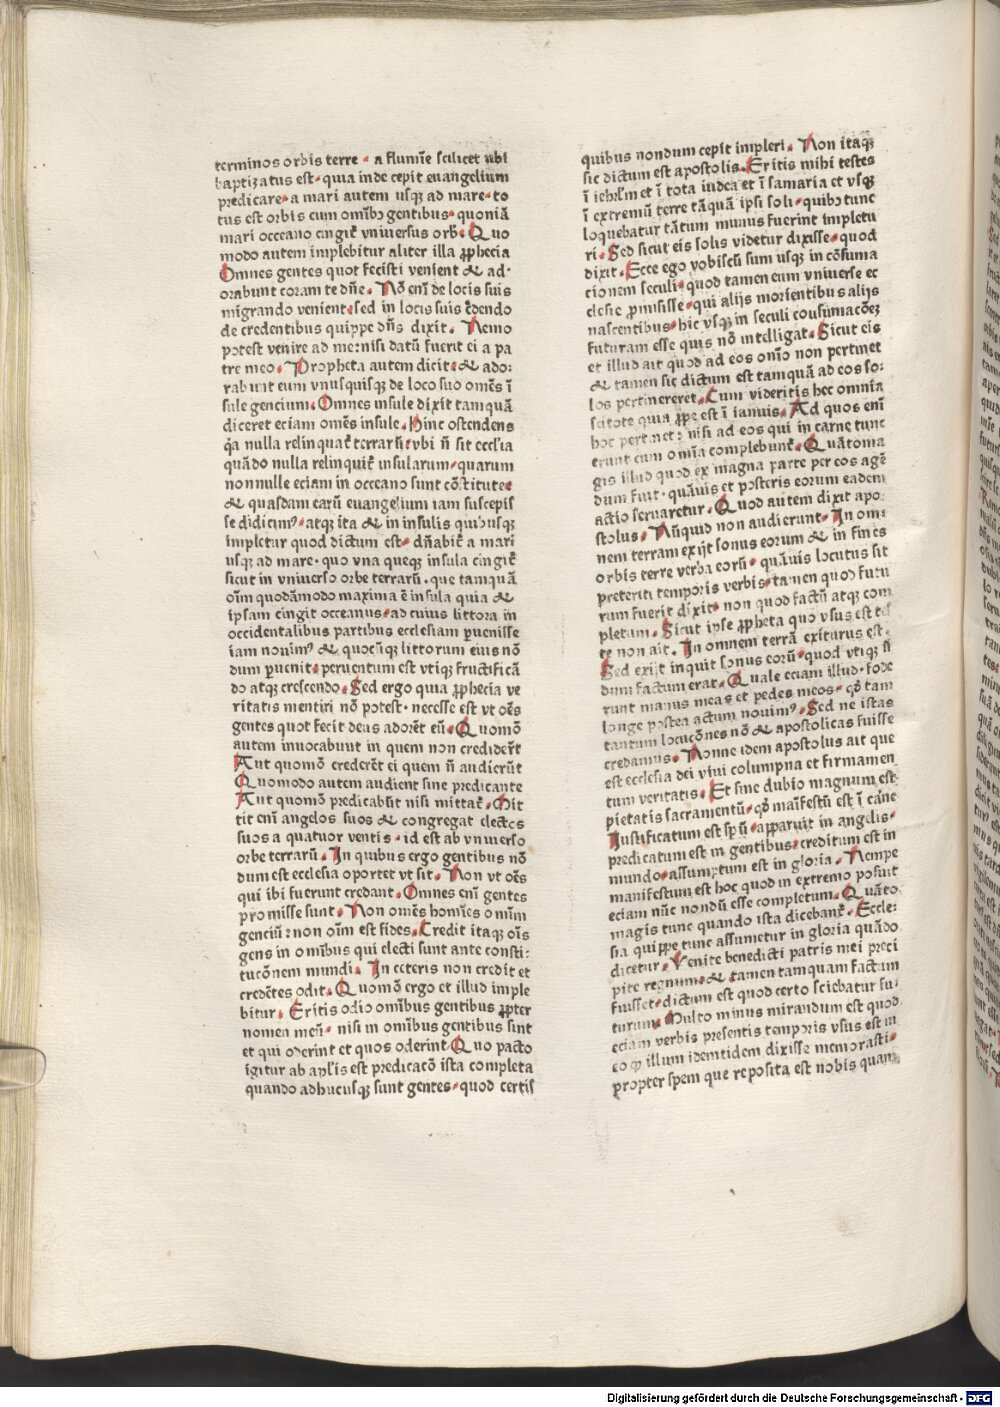 terminos orbis terre · a flumīe scilicet ubi
baptizatus est · quia inde cepit euangelium
predicare · a mari autem usqꝫ ad mare · to
tus est orbis cum omībꝰ gentibus · quoniā
mari occeano cingit᷑ vniuersus orb᷒ · Quo
modo autem implebitur aliter illa ꝓphecia
Omnes gentes quot fecisti venient & ad·
orabunt coram te dn̄e · Nō enī de locis suis
migrando venient · sed in locis suis c̄dendo
de credentibus quippe dn̄s dixit · Nemo
potest venire ad me : nisi datū fuerit ei a pa
tre meo · Propheta autem dicit · & ado:
rabunt eum vnusquisqꝫ de loco suo omēs ī
sule gencium · Omnes insule dixit tamquā
diceret eciam omēs insule · Hinc ostendens
qͣ nulla relinquat᷑ terrarū : vbi n̄ sit eccl̄ia
quādo nulla relinquit᷑ insularum · quarum
nonnulle eciam in occeano sunt cōstitute ·
& quasdam earū euangelium iam suscepis
se didicimꝰ · atqꝫ ita & in insulis quibusqꝫ
impletur quod dictum est · dn̄abit᷑ a mari
usqꝫ ad mare · quo vna queqꝫ insula cingit᷑
sicut in vniuerso orbe terrarū · que tamquā
oīm quodāmodo maxima ē insula quia &
ipsam cingit occeanus · ad cuius littora in
occidentalibus partibus ecclesiam ꝑuenisse
iam nouimꝰ & quocūqꝫ littorum eius nō
dum ꝑuenit · peruentum est vtiqꝫ fructificā
do atqꝫ crescendo · Sed ergo quia ꝓphecia ve
ritatis mentiri nō potest · necesse est vt oēs
gentes quot fecit deus adorēt eū · Quomō
autem inuocabunt in quem non crediderēt
Aut quomō crederēt ei quem n̄ audierūt
Quomodo autem audient sine predicante
Aut quomō predicabūt nisi mittat᷑ · Mit
tit enī angelos suos & congregat electos
suos a quatuor ventis · id est ab vniuerso
orbe terrarū · In quibus ergo gentibus nō
dum est ecclesia oportet vt sit · Non vt oēs
qui ibi fuerunt credant · Omnes enī gentes
promisse sunt · Non omēs homīes omīm
genciū : non oīm est fides · Credit itaqꝫ oīs
gens in omībus qui electi sunt ante consti:
tucōnem mundi · In ceteris non credit et
credētes odit · Quomō ergo et illud imple
bitur · Eritis odio omībus gentibus ꝓpter
nomen meū · nisi in omībus gentibus sint
et qui oderint et quos oderint Quo pacto
igitur ab apl̄is est predicacō ista completa
quando adhucusqꝫ sunt gentes · quod certis
quibus nondum cepit impleri · Non itaqꝫ
sic dictum est apostolis · Eritis mihi testes
ī iehrl̄m et ī tota iudea et ī samaria et vsqꝫ
ī extremū terre tāquā ipsi soli · quibꝰ tunc
loquebatur tātum munus fuerint impletu
ri · Sed sicut eis solis videtur dixisse · quod
dixit · Ecce ego vobiscū sum usqꝫ in cōsuma
cionem seculi · quod tamen eum vniuerse ec
clesie ꝓmisisse · qui alijs morientibus alijs
nascentibus · hic vsqꝫ in seculi cousumacōeꝫ
futuram esse quis nō intelligat · Sicut eis
et illud ait quod ad eos onīo non pertinet
& tamen sic dictum est tamquā ad eos so:
los pertinereret · Cum videritis hec omnia
scitote quia ꝓpe est ī ianuis · Ad quos enī
hoc pertinet : nisi ad eos qui in carne tunc
erunt cum omīa complebunt᷑ · Quātoma
gis illud quod ex magna parte per eos agē
dum fuit · quāuis et posteris eorum eadem
actio seruaretur · Quod autem dixit apo:
stolus · Nūquid non audierunt · In om:
nem terram exijt sonus eorum & in fines
orbis terre verba eorū · quāuis locutus sit
preteriti temporis verbis · tamen quod futu
rum fuerit dixit · non quod factū atqꝫ com
pletum · Sicut ipse ꝓpheta quo vsus est tes
te non ait · In omnem terrā exiturus est ·
Sed exijt inquit sonus eorū · quod vtiqꝫ n̄
dum factum erat · Quale eciam illud · fode
runt manus meas et pedes meos · qd̄ tam
longe postea actum nouimꝰ · Sed ne istas
tantum locucōnes nō & apostolicas fuisse
credamus · Nonne idem apostolus ait que
est ecclesia dei viui columpna et firmamen
tum veritatis · Et sine dubio magnum est
pietatis sacramentū · qd̄ maīfestū est ī carne
Iustificatum est spū · apparuit in angelis ·
predicatum est in gentibus · creditum est in
mundo · assumptum est in gloria · Nempe
manifestum est hoc quod in extremo posuit
eciam nūc nondū esse completum · Quāto
magis tunc quando ista dicebant᷑ · Eccle:
sia quippe tunc assumetur in gloria quādo
dicetur · Venite benedicti patris mei preci
pite regnum · & tamen tamquam factum
fuisset · dictum est quod certo sciebatur fu:
turum · Multo minus mirandum est quod
eciam verbis presentis temporis vsus est in
eo ꝙ illum idemtidem dixisse memorasti ·
propter spem que reposita est nobis quam
Digitalisierung gefördert durch die Deutsche Forschungsgemeinschaft - DFG